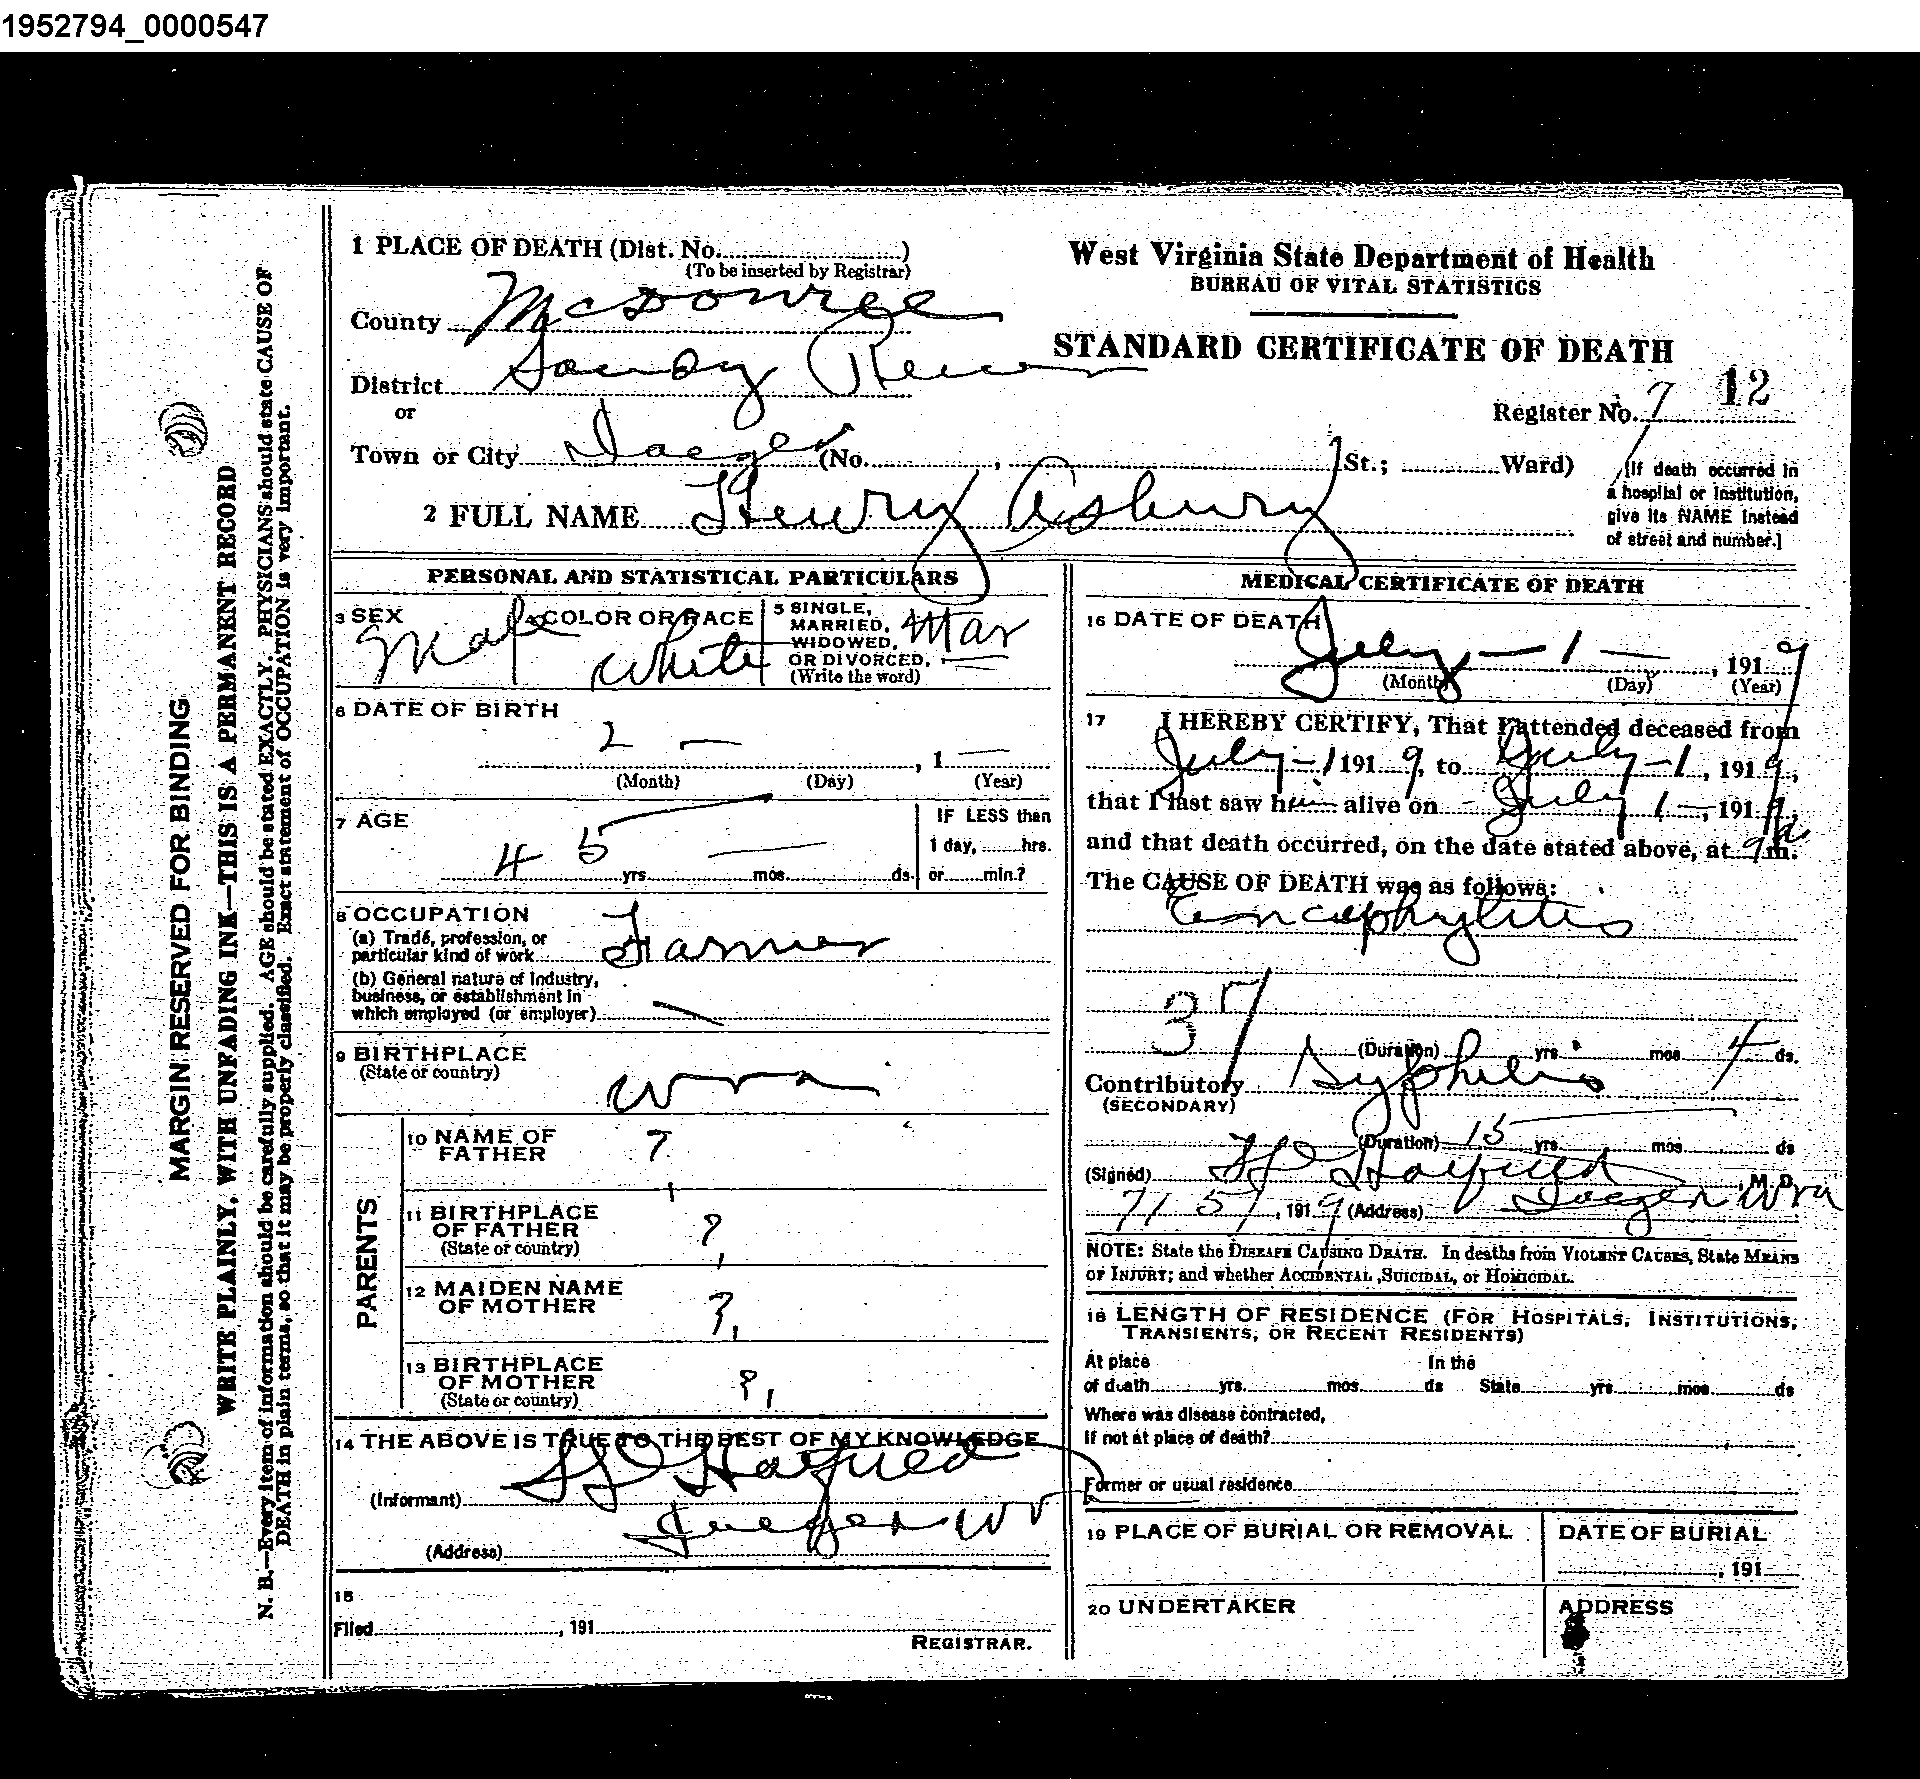 1952794_0000547
1 PLACE OF DEATH (Dist. No. )
(To be inserted by Registrar)
County McDowell
District Sandy River
or
Town or City Iaeger (No. , St.; Ward)
2 FULL NAME Henry Asbury
West Virginia State Department of Health
BUREAU OF VITAL STATISTICS
STANDARD CERTIFICATE OF DEATH
Register No. 7 12
[If death occurred in
a hospital or institution,
give its NAME instead
of street and number.]
PERSONAL AND STATISTICAL PARTICULARS
3 SEX Male
4 COLOR OR RACE White
5 SINGLE,
MARRIED,
WIDOWED,
OR DIVORCED,
(Write the word)
Mar
6 DATE OF BIRTH
, 1
(Month) (Day) (Year)
7 AGE
45 yrs. mos. ds.
IF LESS than
1 day, hrs.
or min.?
8 OCCUPATION
(a) Trade, profession, or
particular kind of work Farmer
(b) General nature of Industry,
business, or establishment in
which employed (or employer)
9 BIRTHPLACE
(State or country)
W Va
PARENTS
10 NAME OF
FATHER ?
11 BIRTHPLACE
OF FATHER
(State or country) ?
12 MAIDEN NAME
OF MOTHER ?
13 BIRTHPLACE
OF MOTHER
(State or country) ?
14 THE ABOVE IS TRUE TO THE BEST OF MY KNOWLEDGE
(Informant)
(Address) Iaeger W V
15
Filed , 191
REGISTRAR.
MEDICAL CERTIFICATE OF DEATH
16 DATE OF DEATH
July - 1 - , 1919
(Month) (Day) (Year)
17 I HEREBY CERTIFY, That I attended deceased from
July - 1 1919, to July - 1, 1919,
that I last saw him alive on July 1 -, 1919,
and that death occurred, on the date stated above, at 9 a m.
The CAUSE OF DEATH was as follows:
Encephylitis
37
(Duration) yrs. mos. 4 ds.
Contributory Syphilis
(SECONDARY)
(Duration) 15 yrs. mos. ds
(Signed) , M. D.
7/5/, 1919 (Address) Iaeger W Va
NOTE: State the DISEASE CAUSING DEATH. In deaths from VIOLENT CAUSES, State MEANS
OF INJURY; and whether ACCIDENTAL, SUICIDAL, or HOMICIDAL.
18 LENGTH OF RESIDENCE (FOR HOSPITALS, INSTITUTIONS,
TRANSIENTS, OR RECENT RESIDENTS)
At place
of death yrs. mos. ds
In the
State yrs. mos. ds
Where was disease contracted,
If not at place of death?
Former or usual residence
19 PLACE OF BURIAL OR REMOVAL
DATE OF BURIAL
, 191
20 UNDERTAKER
ADDRESS
MARGIN RESERVED FOR BINDING
WRITE PLAINLY, WITH UNFADING INK—THIS IS A PERMANENT RECORD
N. B.—Every item of information should be carefully supplied. AGE should be stated EXACTLY. PHYSICIANS should state CAUSE OF
DEATH in plain terms, so that it may be properly classified. Exact statement of OCCUPATION is very important.